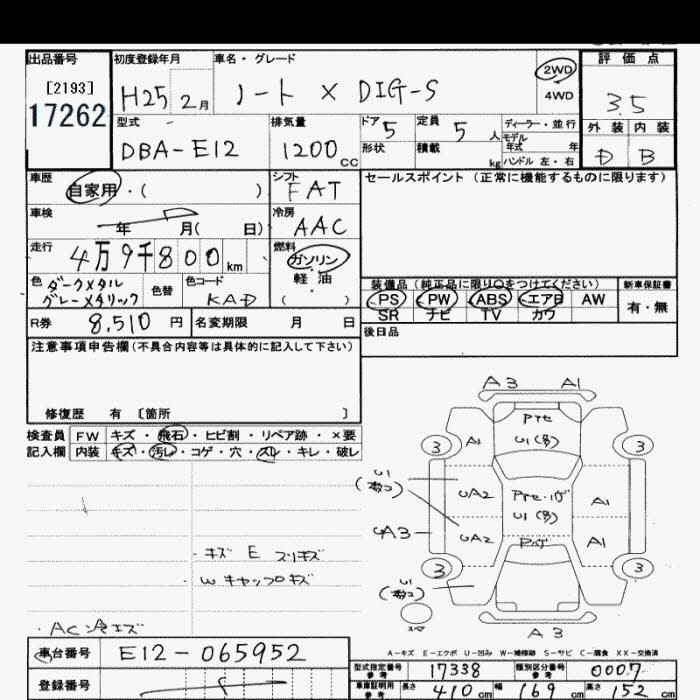 出品番号 初度登録年月 車名・グレード 評価点
[2193] H25 2月 ノート X DIG-S 2WD 4WD 3.5
17262 型式 排気量 ドア 定員 ディーラー・並行 外装 内装
DBA-E12 1200cc 5 5人 モデル年式 年 D B
形状 積載 kg ハンドル 左・右
車歴 シフト セールスポイント(正常に機能するものに限ります)
自家用・( ) FAT
車検 冷房
年 月( 日) AAC
走行 燃料
4万9千800km ガソリン
色 ダークメタル 色替 色コード 軽油
グレーメタリック KAD ( )
装備品(純正品に限り○をつけてください) 新車保証書
PS PW ABS エアB AW 有・無
SR ナビ TV カワ
R券 8,510円 名変期限 月 日 後日品
注意事項申告欄(不具合内容等は具体的に記入して下さい)
修復歴 有 〔箇所 〕
検査員 FW キズ・飛石・ヒビ割・リペア跡・×要
記入欄 内装 キズ・汚レ・コゲ・穴・スレ・キレ・破レ
A3 A1
3 A1 U1 3
U1 UA2 U1 A1
A3 UA2 A1
3 U1 3
A3
・キズ E スリキズ
W キャップキズ
・AC冷エズ
A-キズ E-エクボ U-凹み W-補修跡 S-サビ C-腐食 XX-交換済
車台番号 E12-065952
型式指定番号 参考 17338 類別区分番号 参考 0007
登録番号
車庫証明用 参考 長さ 410cm 幅 169cm 高さ 152cm